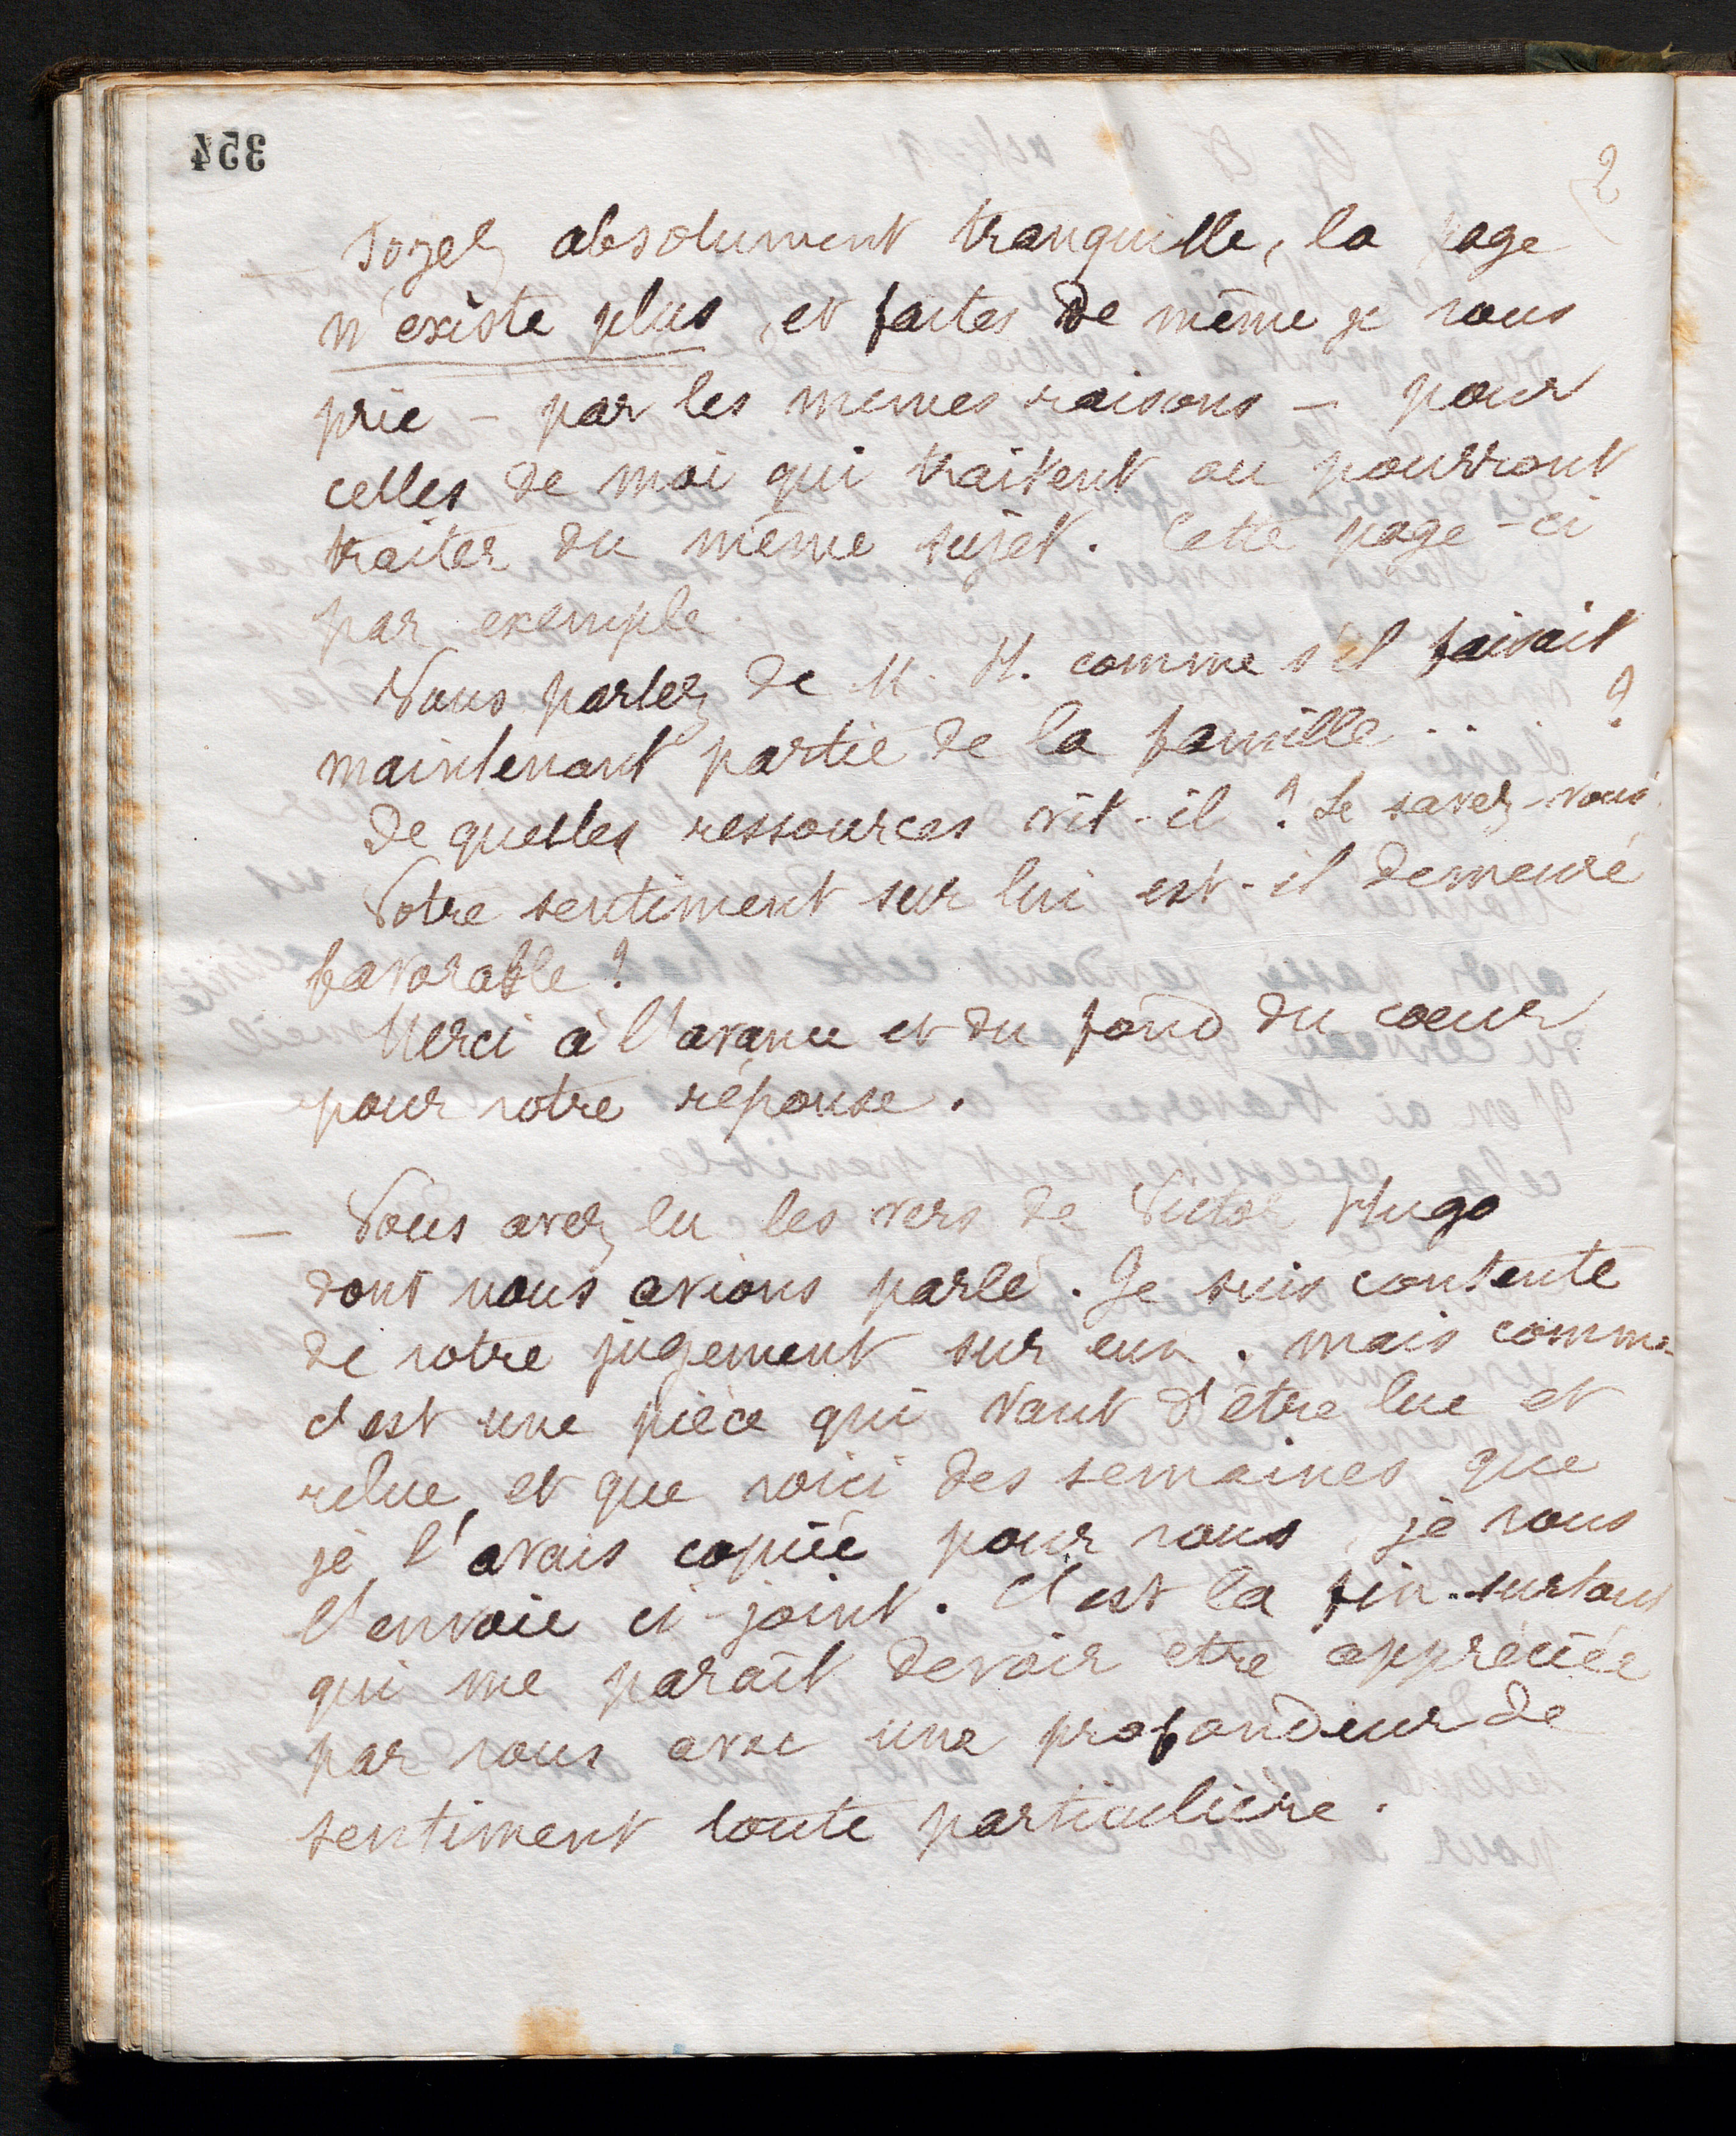 354
2
— Soyez absolument tranquille, la page
n'existe plus, et faites de même je vous
prie — par les mêmes raisons — pour
celles de moi qui traitent ou pourront
traiter du même sujet. Cette page-ci
par exemple.
Vous parlez de M. H. comme s'il faisait
maintenant partie de la famille .. ?
de quelles ressources vit-il ? Le savez-vous
Votre sentiment sur lui est-il demeuré
favorable ?
Merci à l'avance et du fond du coeur
pour votre réponse.
— Vous avez lu les vers de Victor Hugo
dont nous avions parlé. Je suis contente
de votre jugement sur eux. mais comme
c'est une pièce qui vaut d'être lue et
relue, et que voici des semaines que
je l'avais copiée pour vous, je vous
l'envoie ci-joint. C'est la fin surtout
qui me paraît devoir être appréciée
par vous avec une profondeur de
sentiment toute particulière.